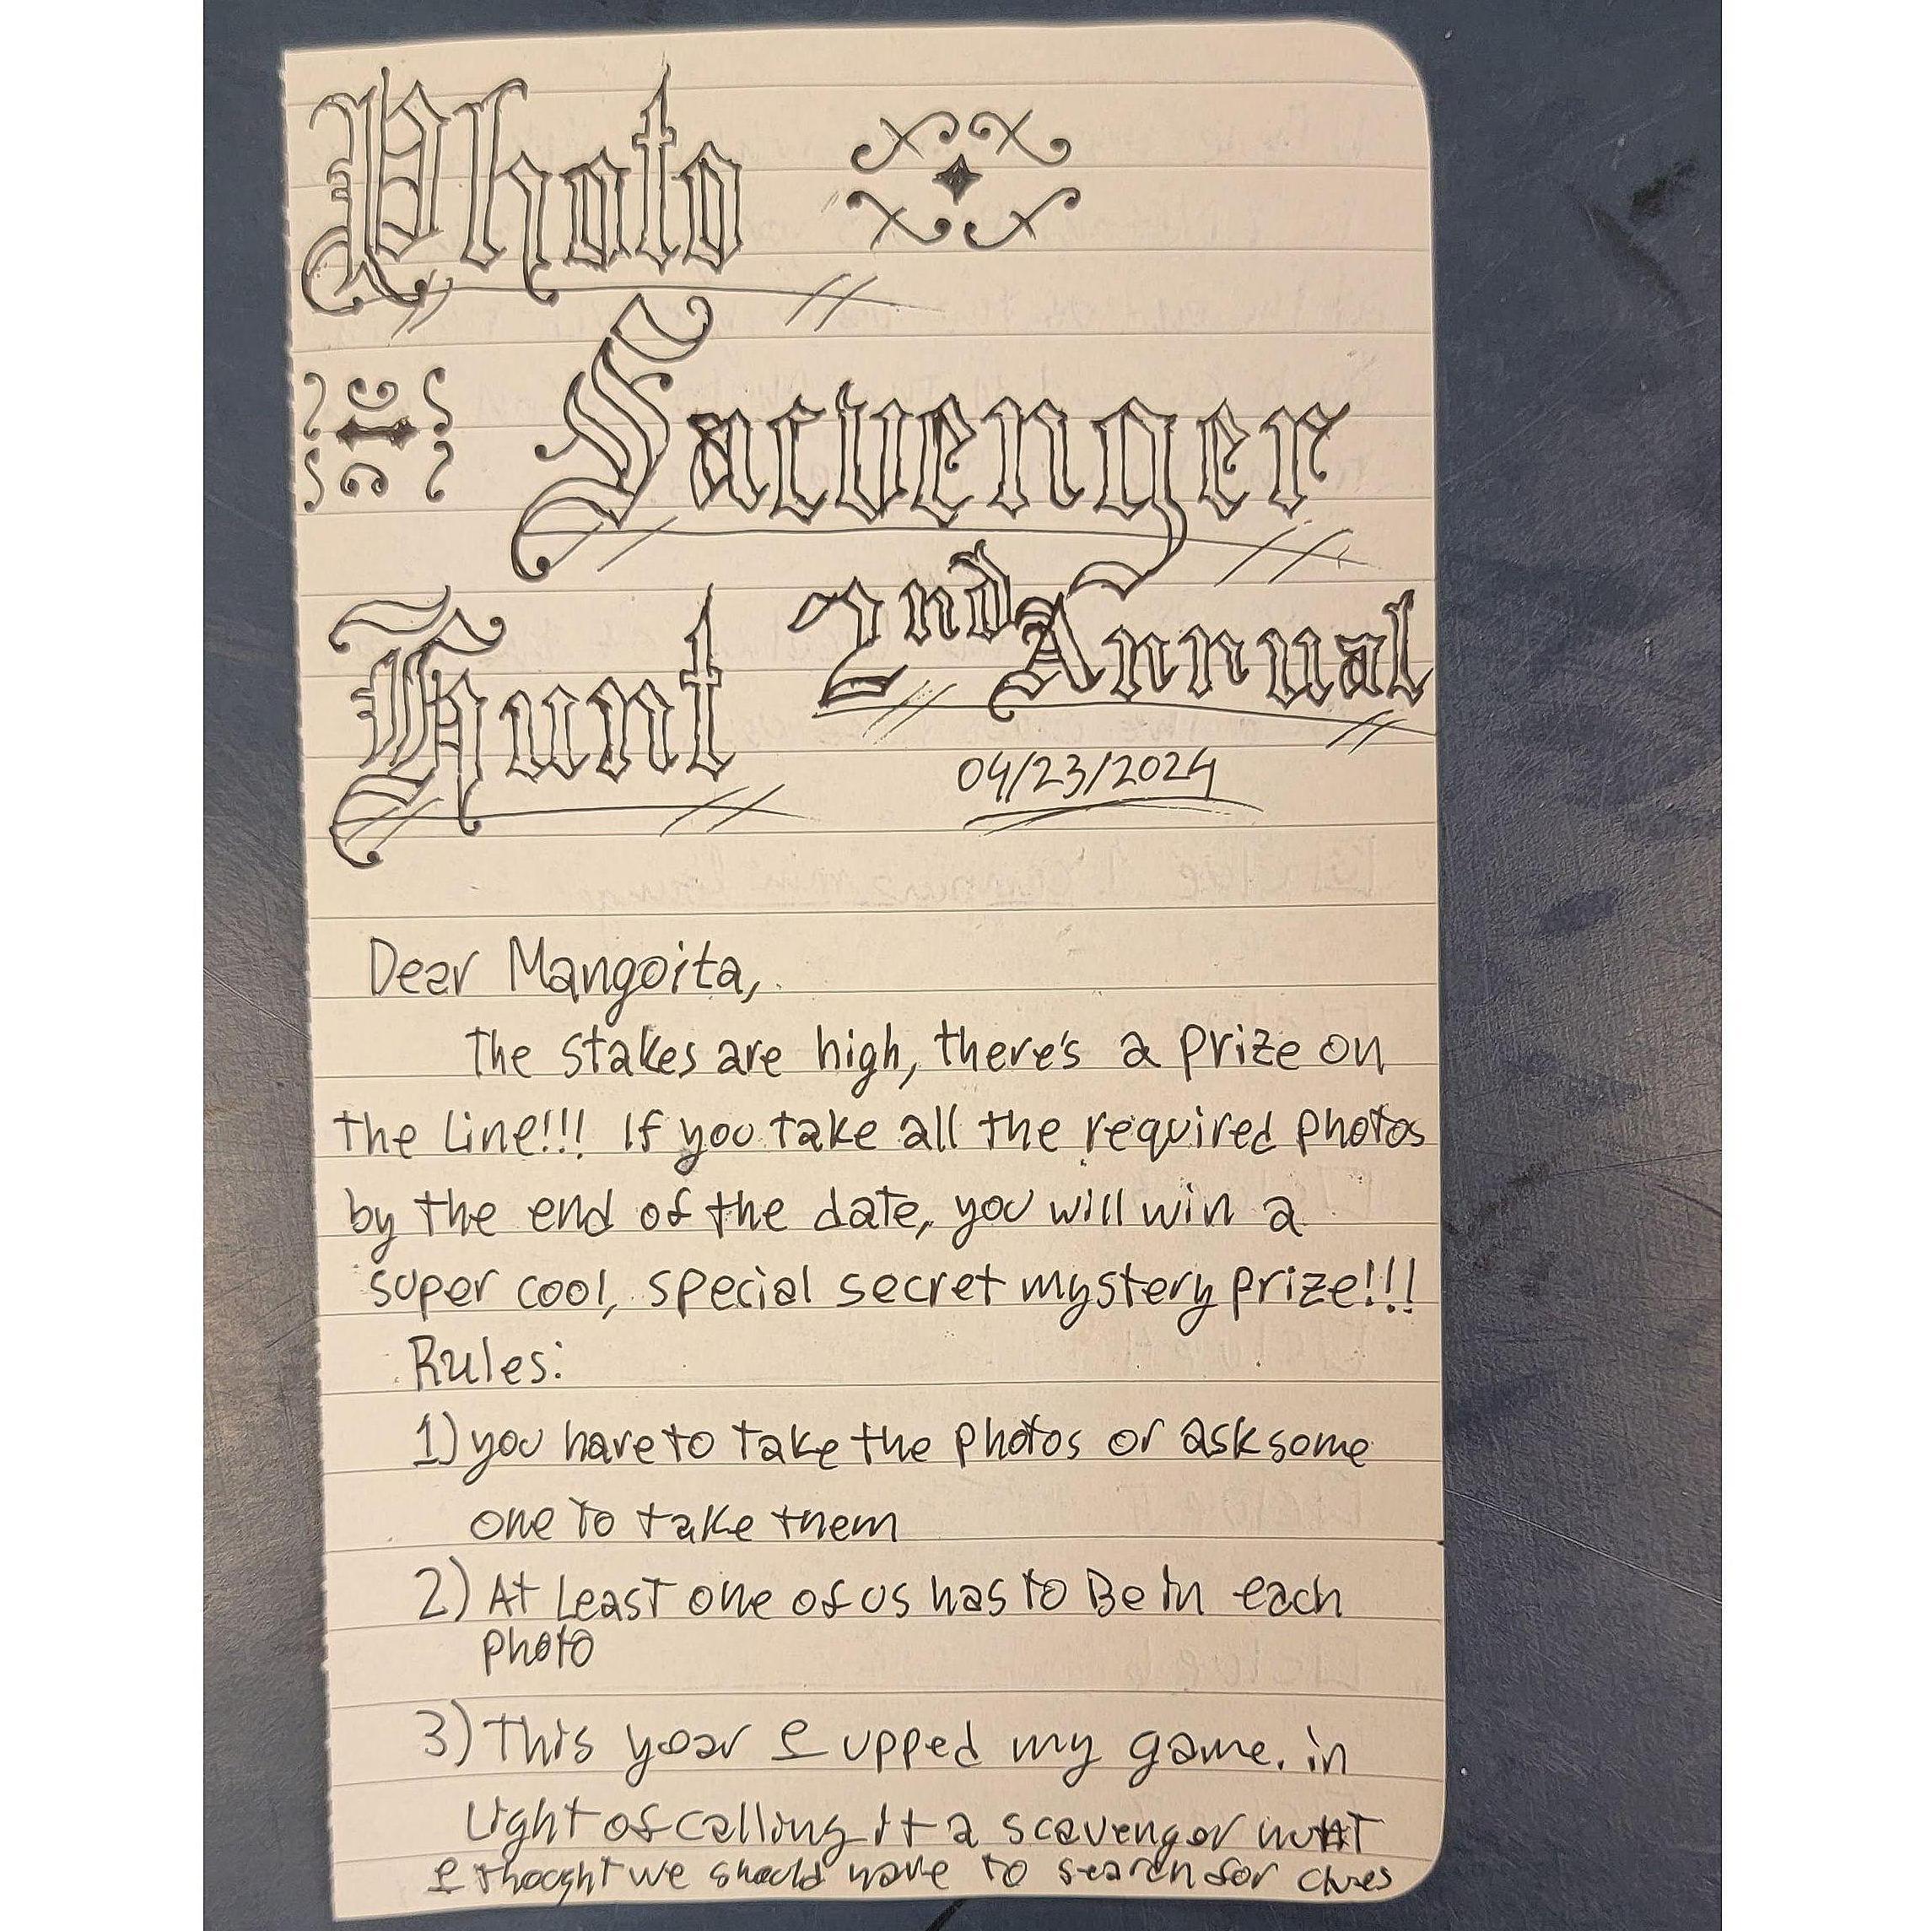 Photo
Sacvenger
Hunt 2nd Annual
04/23/2024
Dear Mangoita,
The stakes are high, there's a prize on
the Line!!! If you take all the required photos
by the end of the date, you will win a
super cool, special secret mystery prize!!!
Rules:
1) you have to take the photos or ask some
one to take them
2) At Least one of us has to Be in each
photo
3) This year I upped my game. in
Light of calling it a scavenger hunt
I thought we should have to search for clues